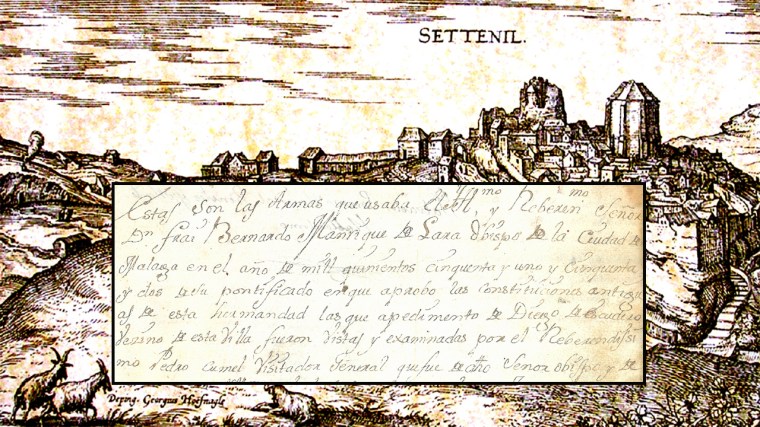 SETTENIL.
Estas son las Armas que usaba el Ill.mo y Reberen.mo Señor
Dn frai Bernardo Manrique de Lara obispo de la Ciudad de
Malaga en el año de mill quinientos cinquenta y uno y cinquenta
y dos de su pontificado en que aprobo las constituciones antigu
as de esta hermandad las que apedimento de Diego de Escudero
Vezino de esta Villa fueron vistas y examinadas por el Reberendissi
mo Pedro Visitador General que fue de dho Senor obispo y de
Deping. Georgius Hoffnagle